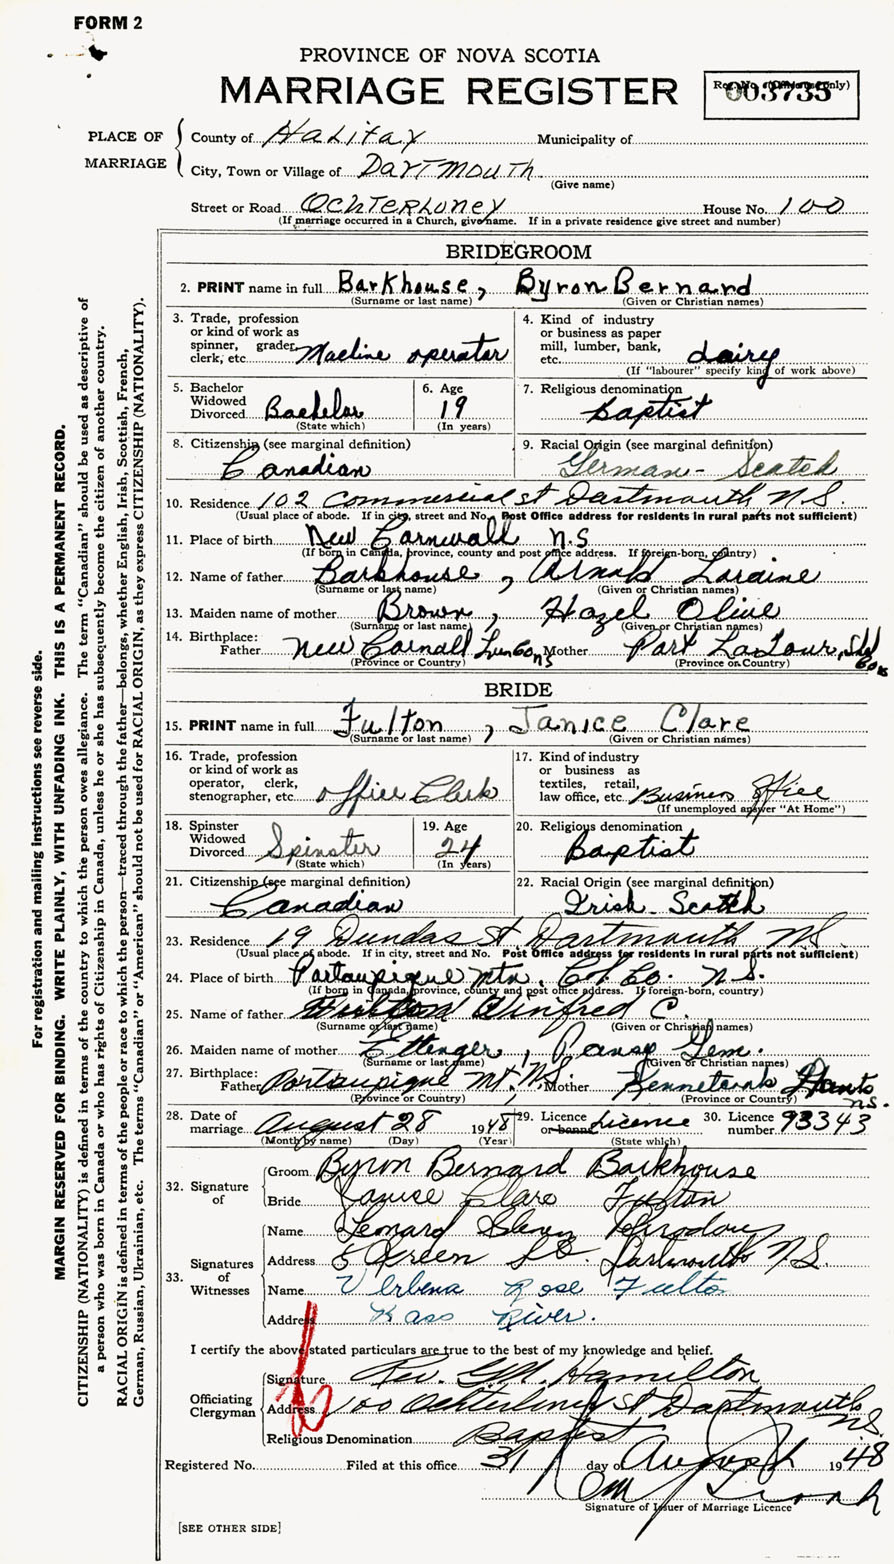 FORM 2
PROVINCE OF NOVA SCOTIA
MARRIAGE REGISTER
Reg. No. (Office use only)
003735
PLACE OF MARRIAGE
County of Halifax Municipality of
City, Town or Village of Dartmouth
(Give name)
Street or Road Ochterloney House No. 100
(If marriage occurred in a Church, give name. If in a private residence give street and number)
BRIDEGROOM
2. PRINT name in full Barkhouse, Byron Bernard
(Surname or last name) (Given or Christian names)
3. Trade, profession or kind of work as spinner, grader, clerk, etc. Macline operator
4. Kind of industry or business as paper mill, lumber, bank, etc. dairy
(If "labourer" specify kind of work above)
5. Bachelor Widowed Divorced Bachelor
(State which)
6. Age 19
(In years)
7. Religious denomination Baptist
8. Citizenship (see marginal definition) Canadian
9. Racial Origin (see marginal definition) German - Scotch
10. Residence 102 Commercial st Dartmouth N.S.
(Usual place of abode. If in city, street and No. Post Office address for residents in rural parts not sufficient)
11. Place of birth New Cornwall N.S
(If born in Canada, province, county and post office address. If foreign-born, country)
12. Name of father Barkhouse, Arnold Loraine
(Surname or last name) (Given or Christian names)
13. Maiden name of mother Brown, Hazel Olive
(Surname or last name) (Given or Christian names)
14. Birthplace: Father New Cornall Lun Co NS Mother Port LaTour, Shel Co NS
(Province or Country) (Province or Country)
BRIDE
15. PRINT name in full Fulton, Janice Clare
(Surname or last name) (Given or Christian names)
16. Trade, profession or kind of work as operator, clerk, stenographer, etc. office Clerk
17. Kind of industry or business as textiles, retail, law office, etc. Business office
(If unemployed answer "At Home")
18. Spinster Widowed Divorced Spinster
(State which)
19. Age 24
(In years)
20. Religious denomination Baptist
21. Citizenship (see marginal definition) Canadian
22. Racial Origin (see marginal definition) Irish-Scotch
23. Residence 19 Dundas St Dartmouth N.S.
(Usual place of abode. If in city, street and No. Post Office address for residents in rural parts not sufficient)
24. Place of birth Portaupique Mtn, Col. Co. N.S.
(If born in Canada, province, county and post office address. If foreign-born, country)
25. Name of father Fulton C.
(Surname or last name) (Given or Christian names)
26. Maiden name of mother Ettenger, Pansy Gem.
(Surname or last name) (Given or Christian names)
27. Birthplace: Father Portaupique Mt, N.S. Mother Kennetcook Hants N.S.
(Province or Country) (Province or Country)
28. Date of marriage August 28 1948
(Month by name) (Day) (Year)
29. Licence or banns Licence
(State which)
30. Licence number 93343
32. Signature of
Groom Byron Bernard Barkhouse
Bride Janice Clare Fulton
33. Signatures of Witnesses
Name Leonard Glenn
Address 5 Green St. Dartmouth N.S.
Name Verbena Rose Fulton
Address Bass River.
I certify the above stated particulars are true to the best of my knowledge and belief.
Officiating Clergyman
Signature Rev. G.M. Hamilton
Address 100 Ochterloney St Dartmouth N.S.
Religious Denomination Baptist
Registered No. Filed at this office 31 day of August 1948
Signature of Issuer of Marriage Licence
[SEE OTHER SIDE]
For registration and mailing instructions see reverse side.
MARGIN RESERVED FOR BINDING. WRITE PLAINLY, WITH UNFADING INK. THIS IS A PERMANENT RECORD.
CITIZENSHIP (NATIONALITY) is defined in terms of the country to which the person owes allegiance. The term "Canadian" should be used as descriptive of
a person who was born in Canada or who has rights of Citizenship in Canada, unless he or she has subsequently become the citizen of another country.
RACIAL ORIGIN is defined in terms of the people or race to which the person—traced through the father—belongs, whether English, Irish, Scottish, French,
German, Russian, Ukrainian, etc. The terms "Canadian" or "American" should not be used for RACIAL ORIGIN, as they express CITIZENSHIP (NATIONALITY).